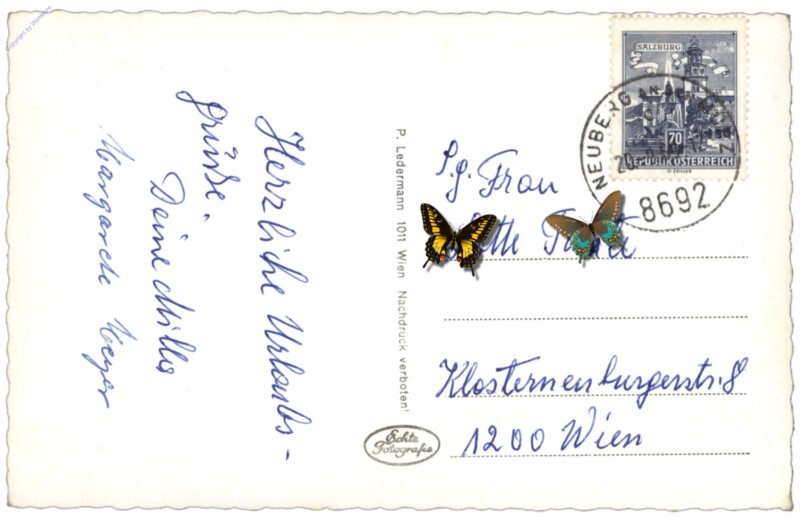 Copyright by
Herzliche Urlaubs-
grüße.
Deine Milla
Margarete Meyer
P. Ledermann 1011 Wien Nachdruck verboten!
Echte
Fotografie
SALZBURG
70
REPUBLIK ÖSTERREICH
NEUBERG AN DER MÜRZ
8692
P.g. Frau
Klosterneuburgerstr. 8
1200 Wien